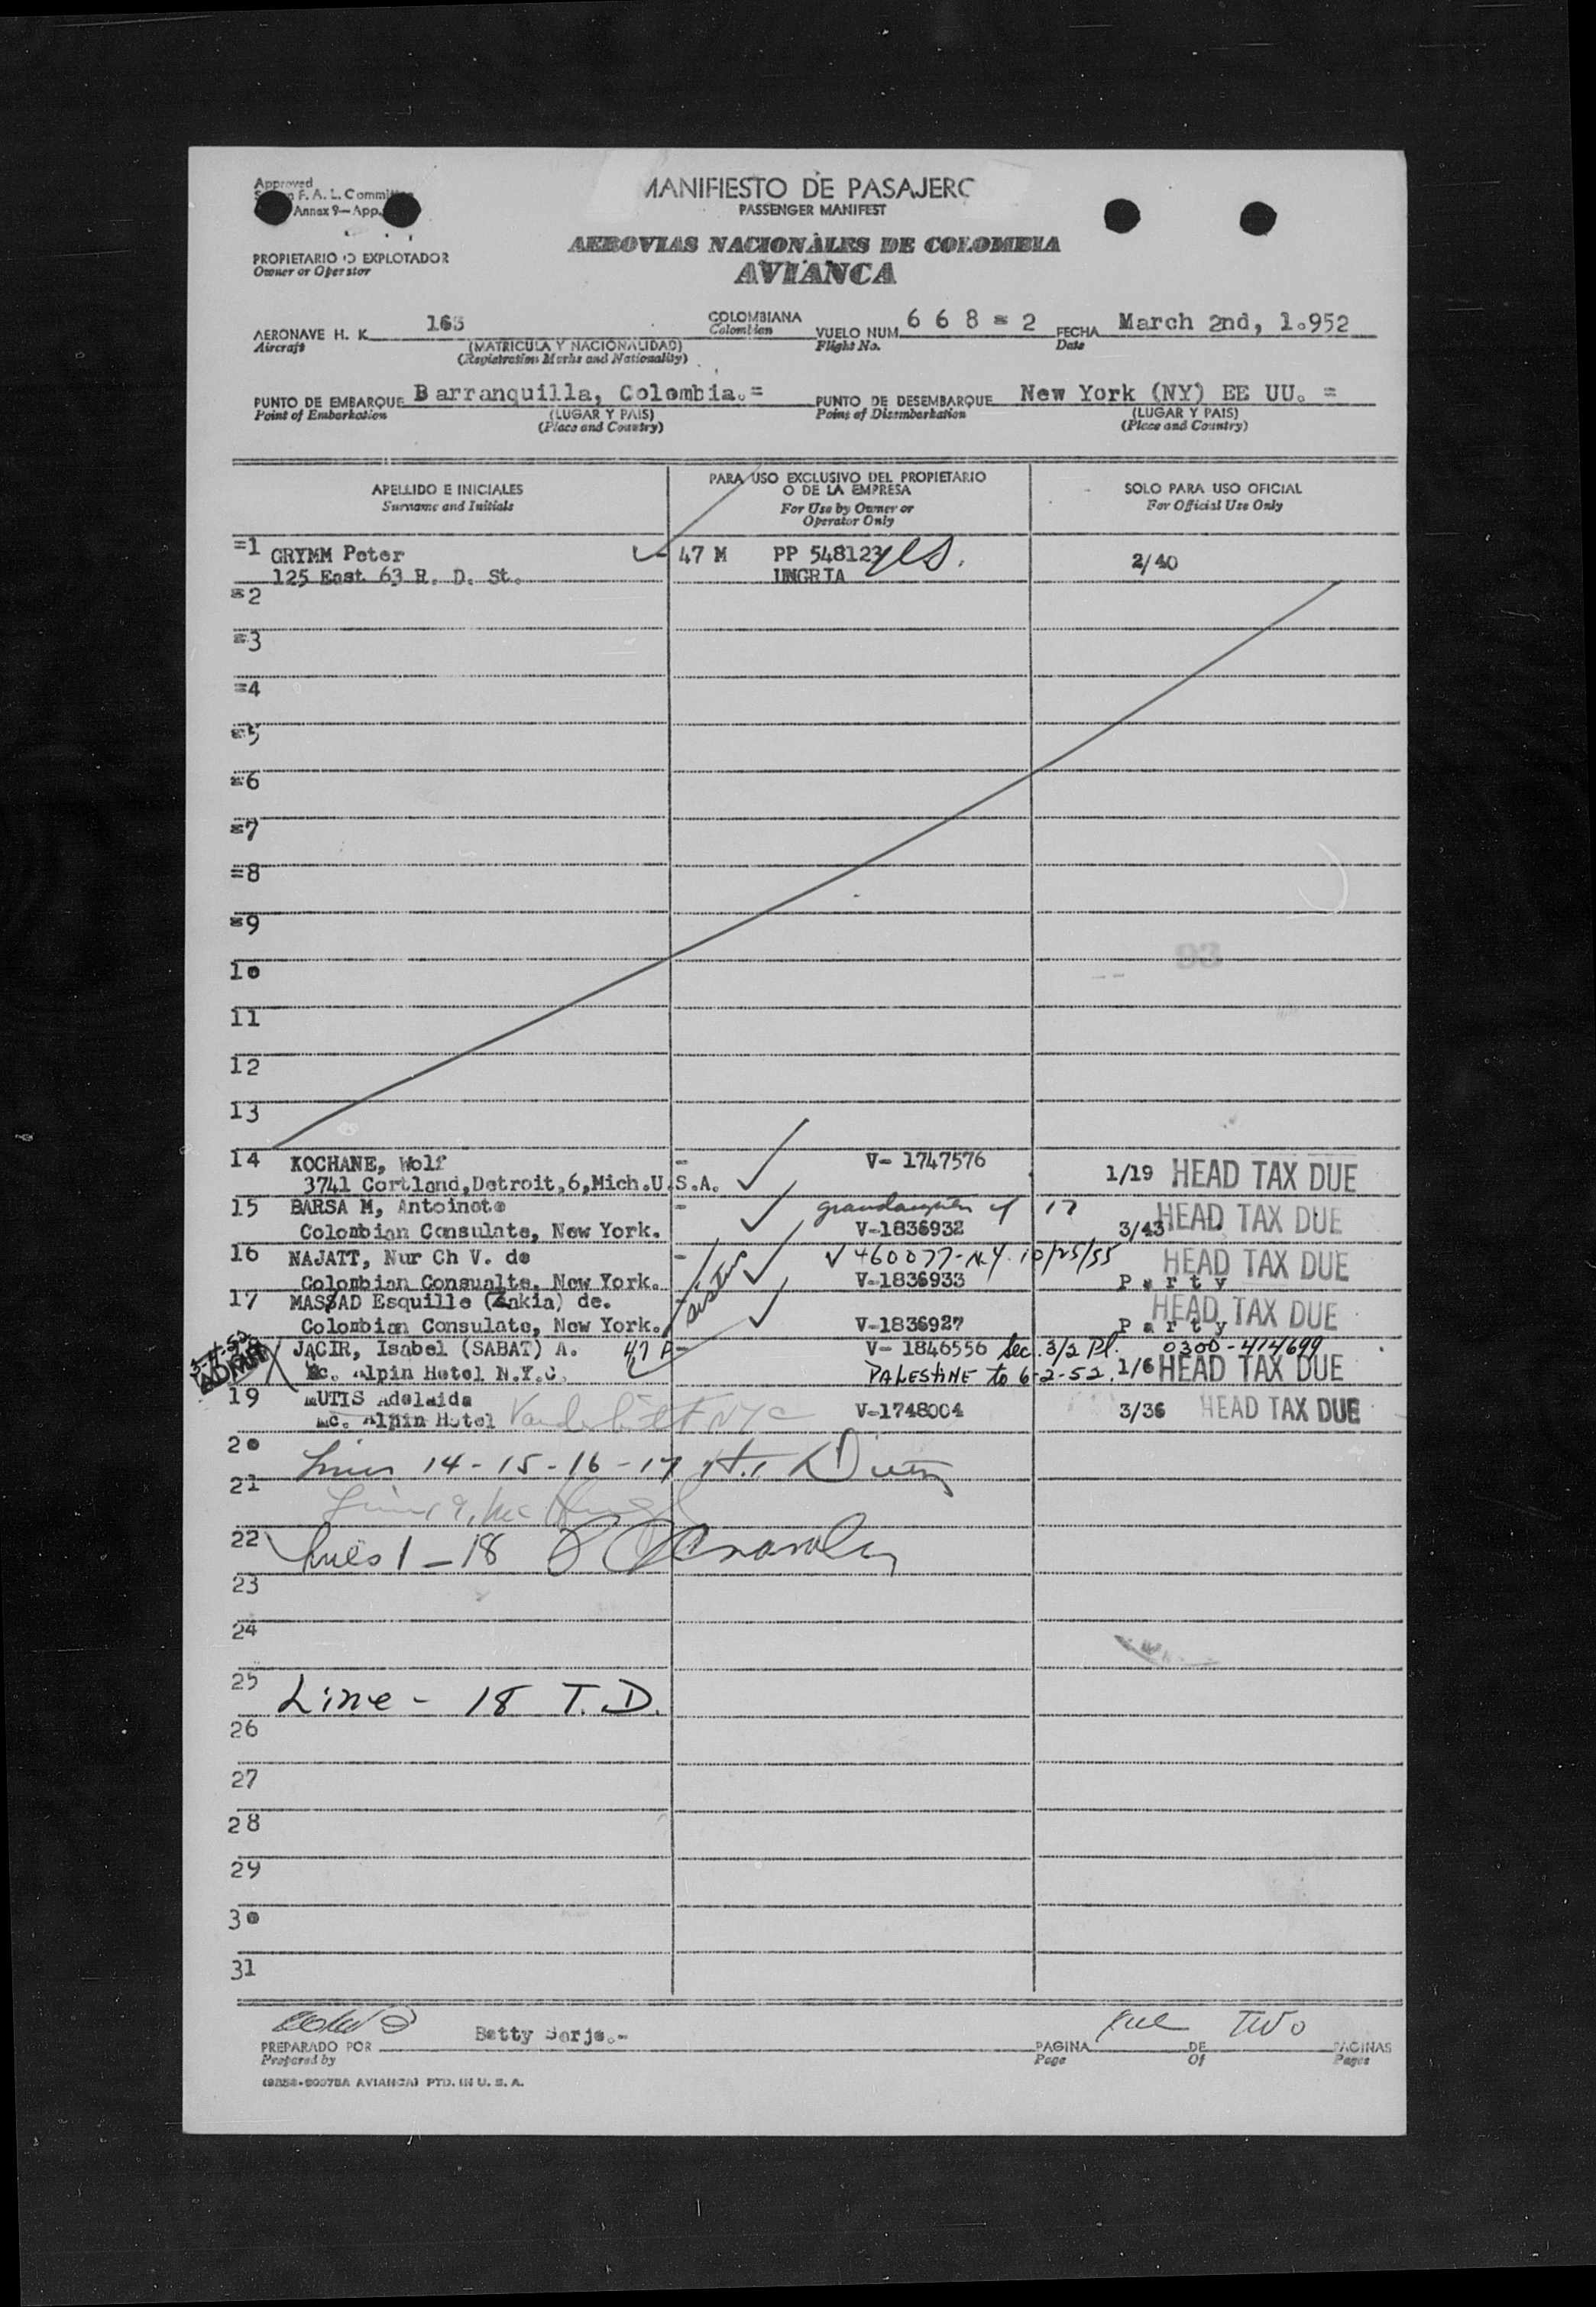 Approved
F. A. L.
Annex 9—App.
MANIFIESTO DE PASAJERO
PASSENGER MANIFEST
AEROVIAS NACIONALES DE COLOMBIA
AVIANCA
PROPIETARIO O EXPLOTADOR
Owner or Operator
AERONAVE H. K. 163 COLOMBIANA VUELO NUM. 6 6 8 = 2 FECHA March 2nd, 1.952
Aircraft (MATRICULA Y NACIONALIDAD) Colombian Flight No. Date
(Registration Marks and Nationality)
PUNTO DE EMBARQUE Barranquilla, Colombia.= PUNTO DE DESEMBARQUE New York (NY) EE UU. =
Point of Embarkation (LUGAR Y PAIS) Point of Disembarkation (LUGAR Y PAIS)
(Place and Country) (Place and Country)
APELLIDO E INICIALES PARA USO EXCLUSIVO DEL PROPIETARIO O DE LA EMPRESA SOLO PARA USO OFICIAL
Surname and Initials For Use by Owner or Operator Only For Official Use Only
=1 GRYMM Peter 47 M PP 548123 yes. 2/40
125 East 63 R. D. St. UNGRIA
=2
=3
=4
=5
=6
=7
=8
=9
10
11
12
13
14 KOCHANE, Wolf - V- 1747576
3741 Cortland,Detroit,6,Mich.U.S.A. 1/19 HEAD TAX DUE
15 BARSA M, Antoinete - grandaughter of 17
Colombian Consulate, New York. V-1836932 3/43 HEAD TAX DUE
16 NAJATT, Nur Ch V. de - V 460077-N.Y. 10/25/55 HEAD TAX DUE
Colombian Consualte, New York. V-1836933 Party
17 MASSAD Esquille (Zakia) de. sister HEAD TAX DUE
Colombian Consulate, New York. V-1836927 Party
JACIR, Isabel (SABAT) A. 47 V- 1846556 Sec. 3/2 Pl. 0300-414699
Mc. Alpin Hotel N.Y.C. PALESTINE to 6-2-52. 1/6 HEAD TAX DUE
19 MUTIS Adelaida
Mc. Alpin Hotel Vanderbilt NYC V-1748004 3/36 HEAD TAX DUE
20
Lines 14-15-16-17
21
22 Lines 1-18
23
24
25
Line - 18 T.D.
26
27
28
29
30
31
Betty Borje.- Two
PREPARADO POR PAGINA DE PAGINAS
Prepared by Page Of Pages
AVIANCA) PTD. IN U. S. A.